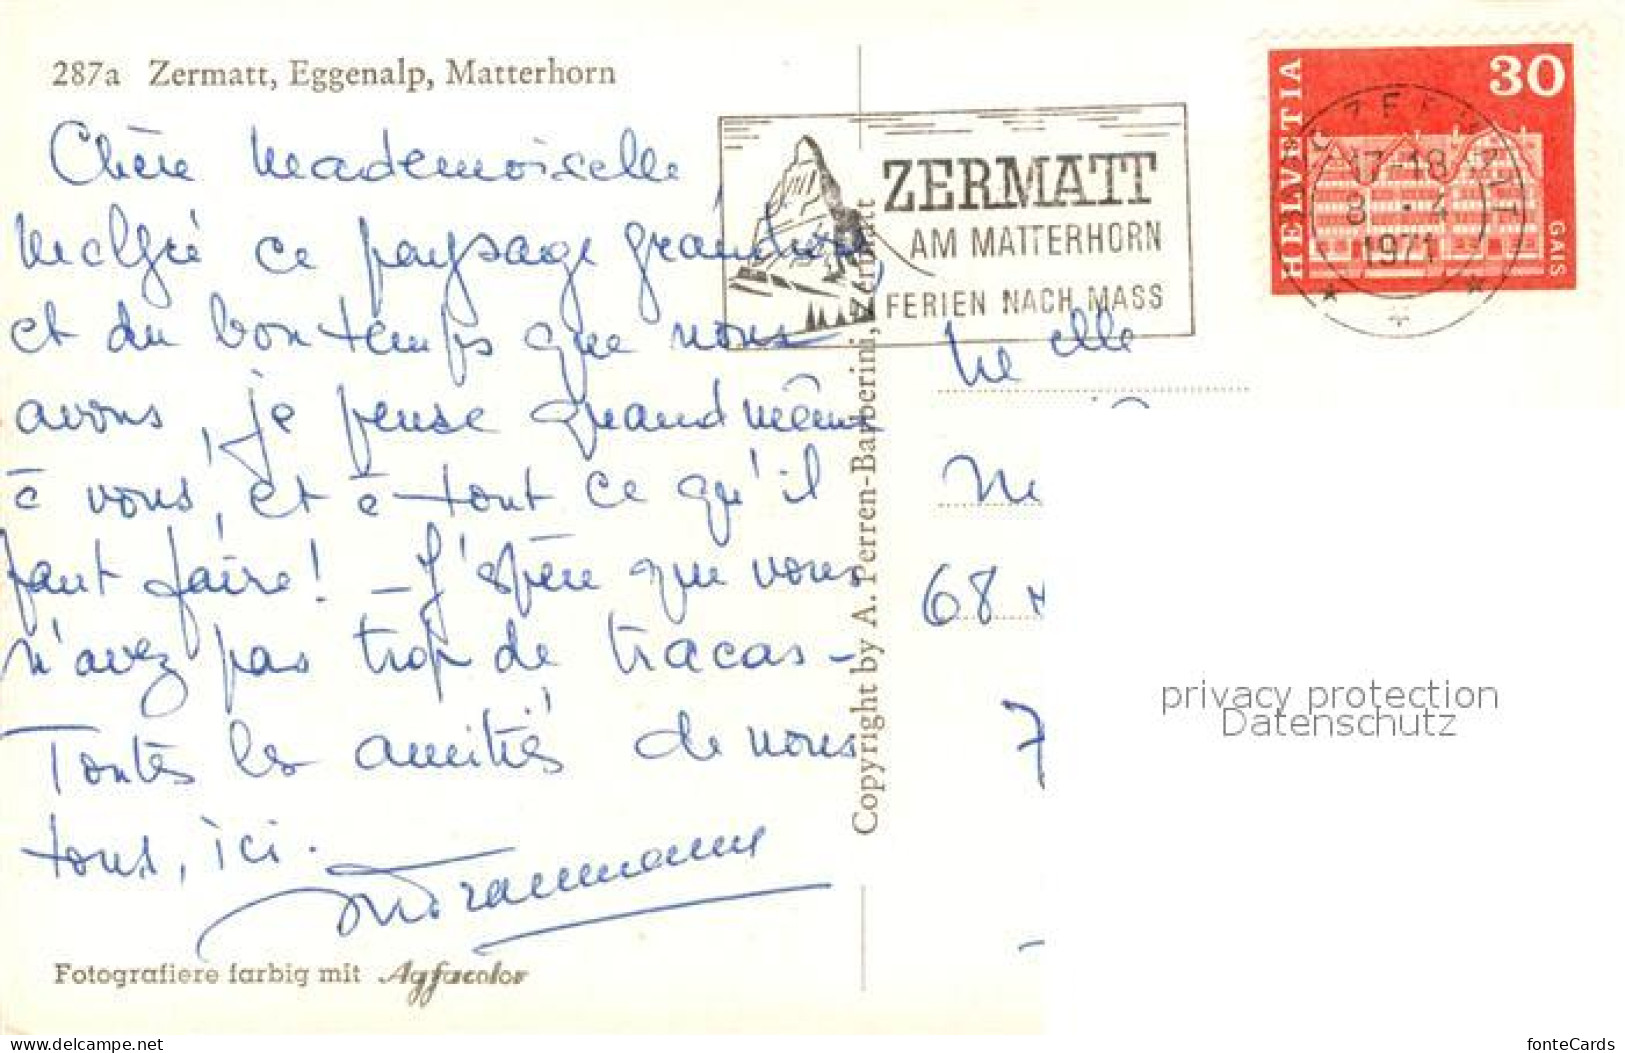 287a Zermatt, Eggenalp, Matterhorn
Chère Mademoiselle,
Malgré ce paysage grandiose,
et du bon temps que nous
avons, je pense quand même
à vous, et à tout ce qu'il
faut faire! - J'espère que vous
n'avez pas trop de tracas -
Toutes les amitiés de nous
tous, ici.
Fotografiere farbig mit Agfacolor
Copyright by A. Perren-Barberini, Zermatt
ZERMATT
AM MATTERHORN
FERIEN NACH MASS
HELVETIA
30
GAIS
ZERMATT
17-18
8. 4
1971
Melle
68
privacy protection
Datenschutz
www.delcampe.net
fonteCards